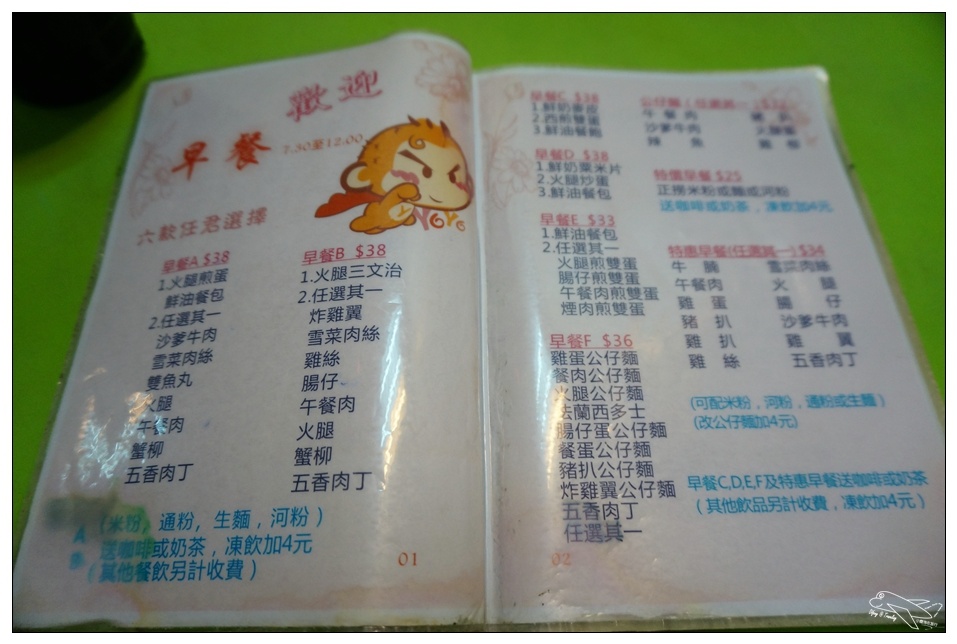 歡迎
早餐 7.30至12.00
YoYo
六款任君選擇
早餐A $38
1.火腿煎蛋
鮮油餐包
2.任選其一
沙爹牛肉
雪菜肉絲
雙魚丸
火腿
午餐肉
蟹柳
五香肉丁
早餐B $38
1.火腿三文治
2.任選其一
炸雞翼
雪菜肉絲
雞絲
腸仔
午餐肉
火腿
蟹柳
五香肉丁
A (米粉, 通粉, 生麵, 河粉)
送咖啡或奶茶, 凍飲加4元
(其他餐飲另計收費)
01
早餐C $38
1.鮮奶麥皮
2.西煎雙蛋
3.鮮油餐包
早餐D $38
1.鮮奶粟米片
2.火腿炒蛋
3.鮮油餐包
早餐E $33
1.鮮油餐包
2.任選其一
火腿煎雙蛋
腸仔煎雙蛋
午餐肉煎雙蛋
煙肉煎雙蛋
早餐F $36
雞蛋公仔麵
餐肉公仔麵
火腿公仔麵
法蘭西多士
腸仔蛋公仔麵
餐蛋公仔麵
豬扒公仔麵
炸雞翼公仔麵
五香肉丁
任選其一
02
公仔麵(任選其一)
午餐肉
沙爹牛肉
辣魚
特價早餐 $25
正撈米粉或麵或河粉
送咖啡或奶茶, 凍飲加4元
特惠早餐(任選其一) $34
牛腩 雪菜肉絲
午餐肉 火腿
雞蛋 腸仔
豬扒 沙爹牛肉
雞扒 雞翼
雞絲 五香肉丁
(可配米粉, 河粉, 通粉或生麵)
(改公仔麵加4元)
早餐C,D,E,F及特惠早餐送咖啡或奶茶
(其他飲品另計收費, 凍飲加4元)